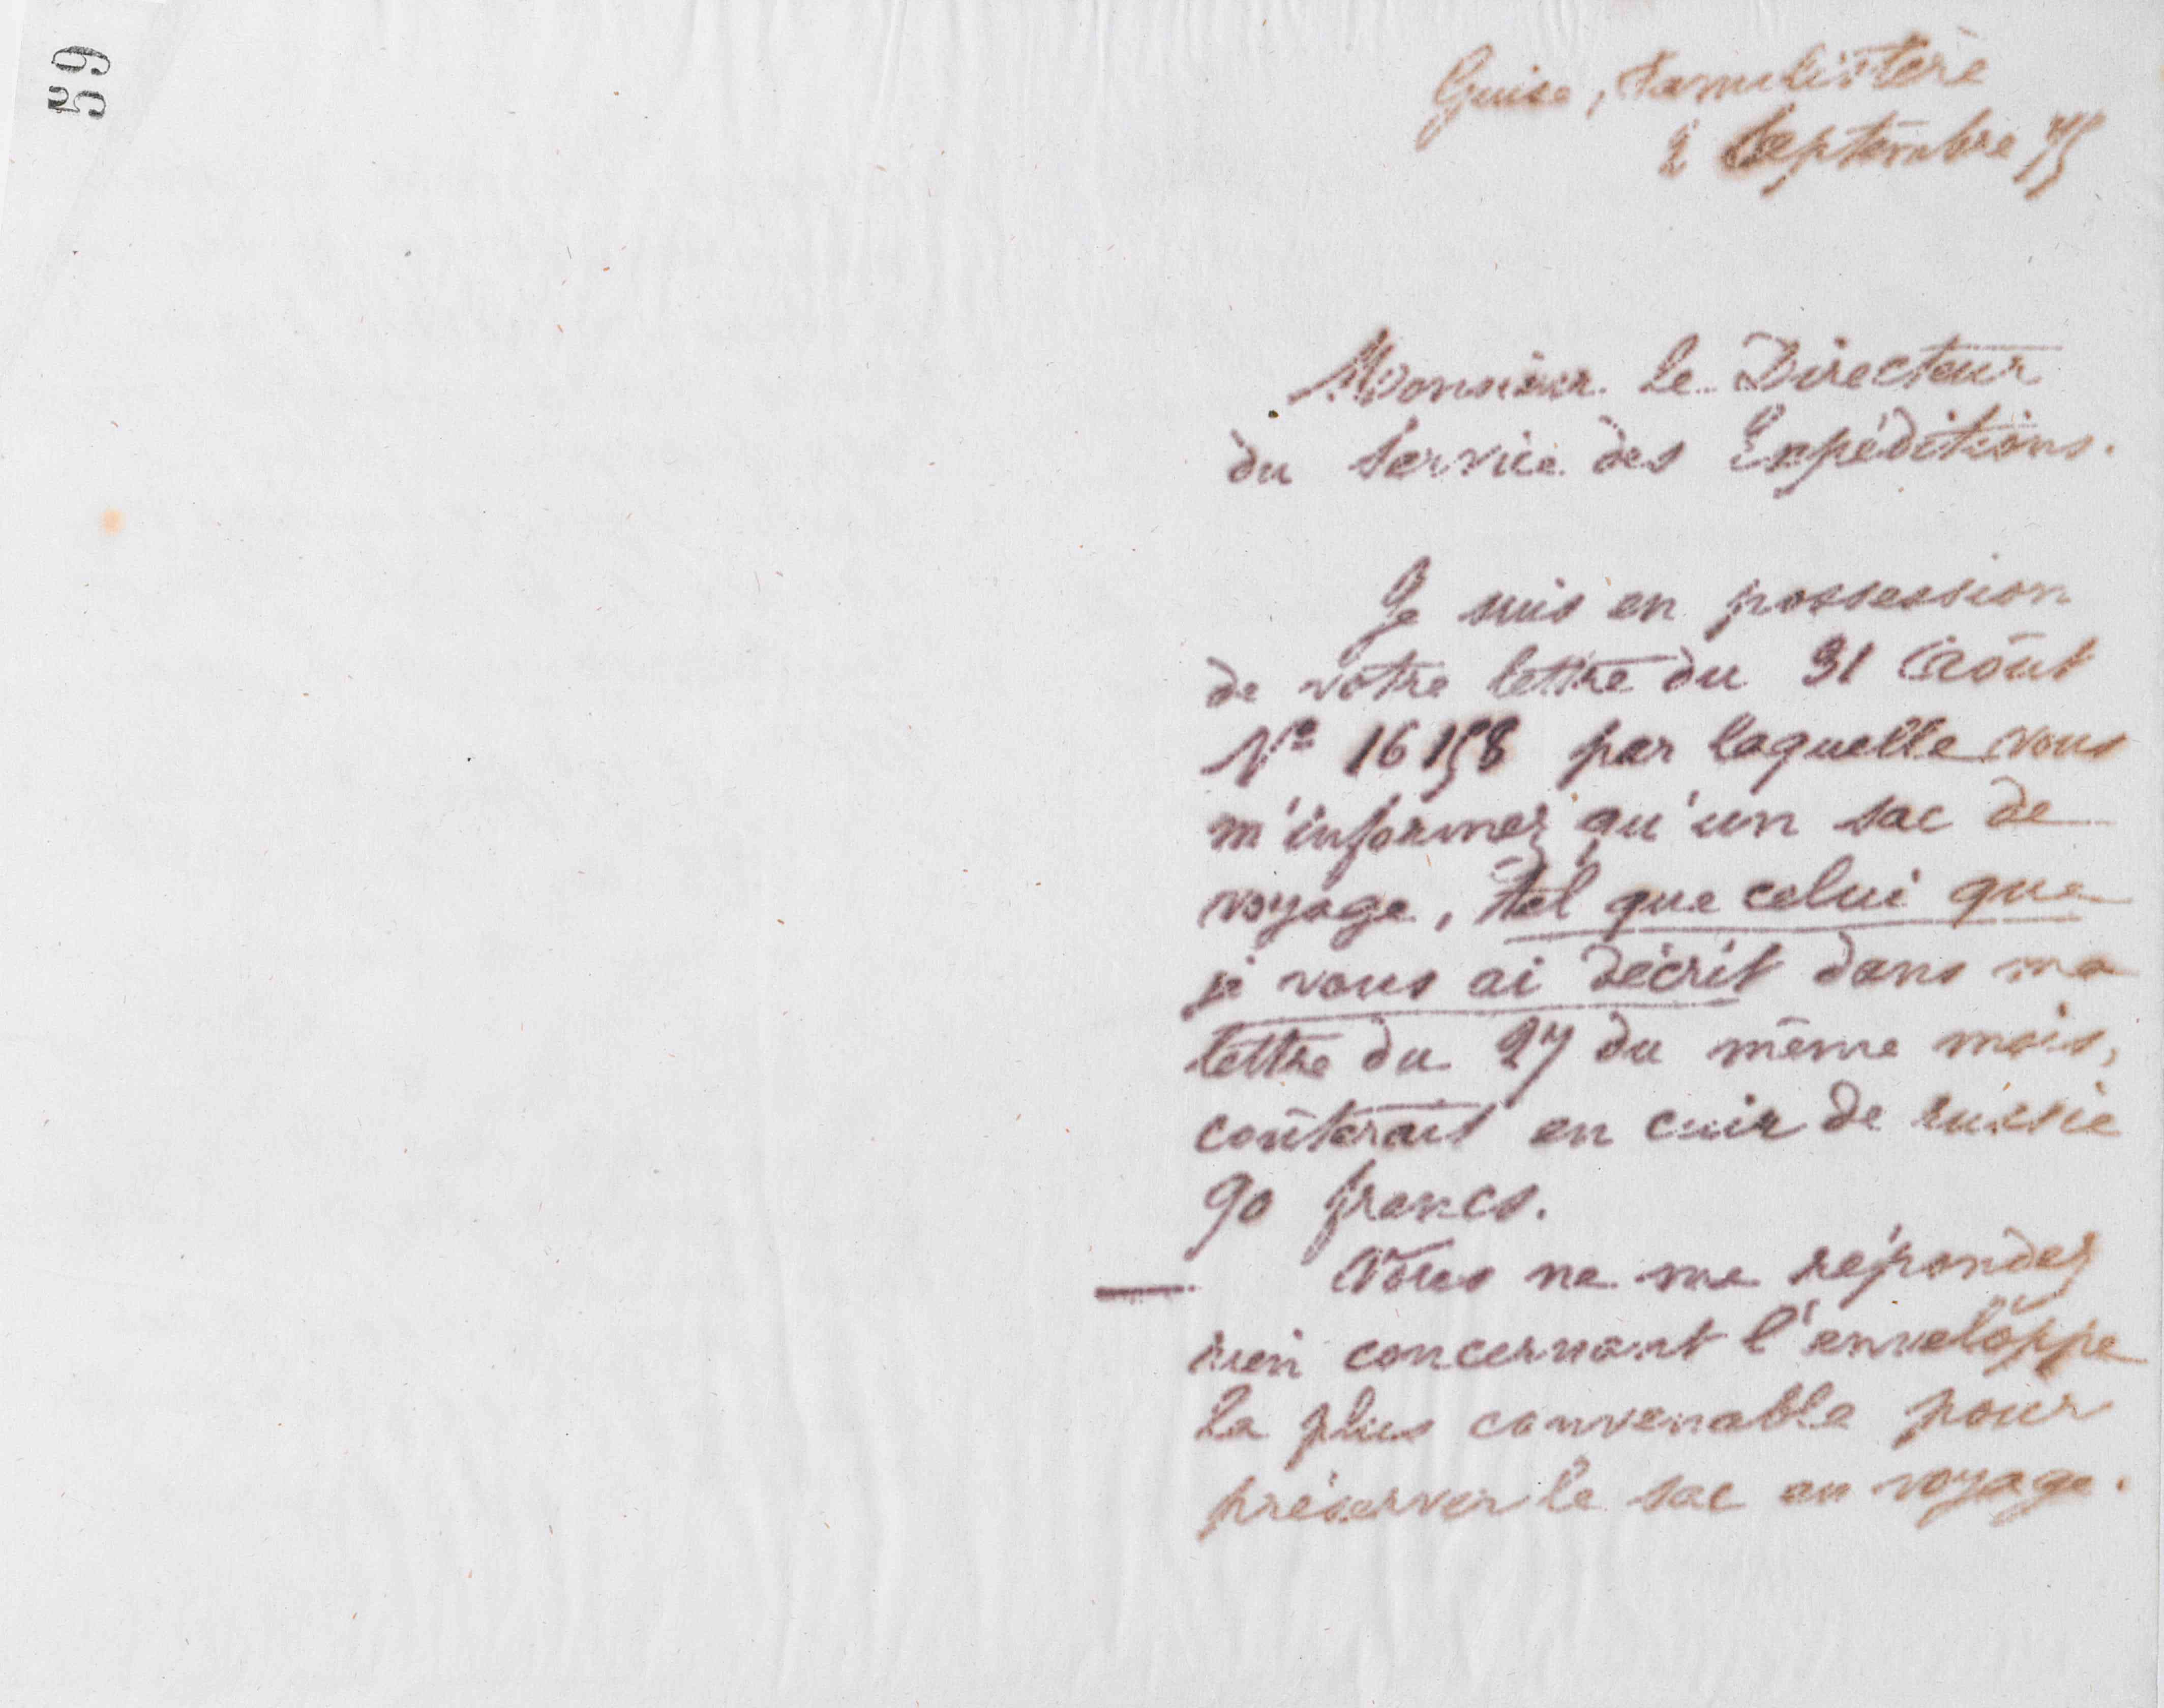 59
Guise, Familistère
2 Septembre 75
Monsieur le Directeur
du Service des Expéditions.
Je suis en possession
de votre lettre du 31 Août
Nº 16158 par laquelle vous
m'informez qu'un sac de
voyage, tel que celui que
je vous ai décrit dans ma
lettre du 27 du même mois,
coûterait en cuir de russie
90 francs.
— Vous ne me répondez
rien concernant l'enveloppe
la plus convenable pour
préserver le sac en voyage.